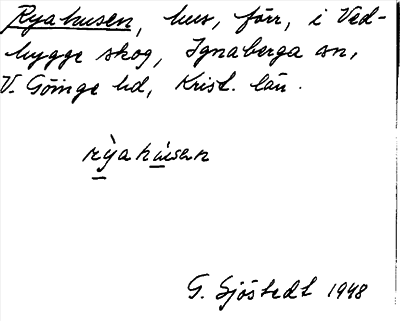 Ryahusen, hus, förr, i Ved-
hygge skog, Ignaberga sn,
V. Göinge hd, Krist. län.
rỳahúsen
G. Sjöstedt 1948